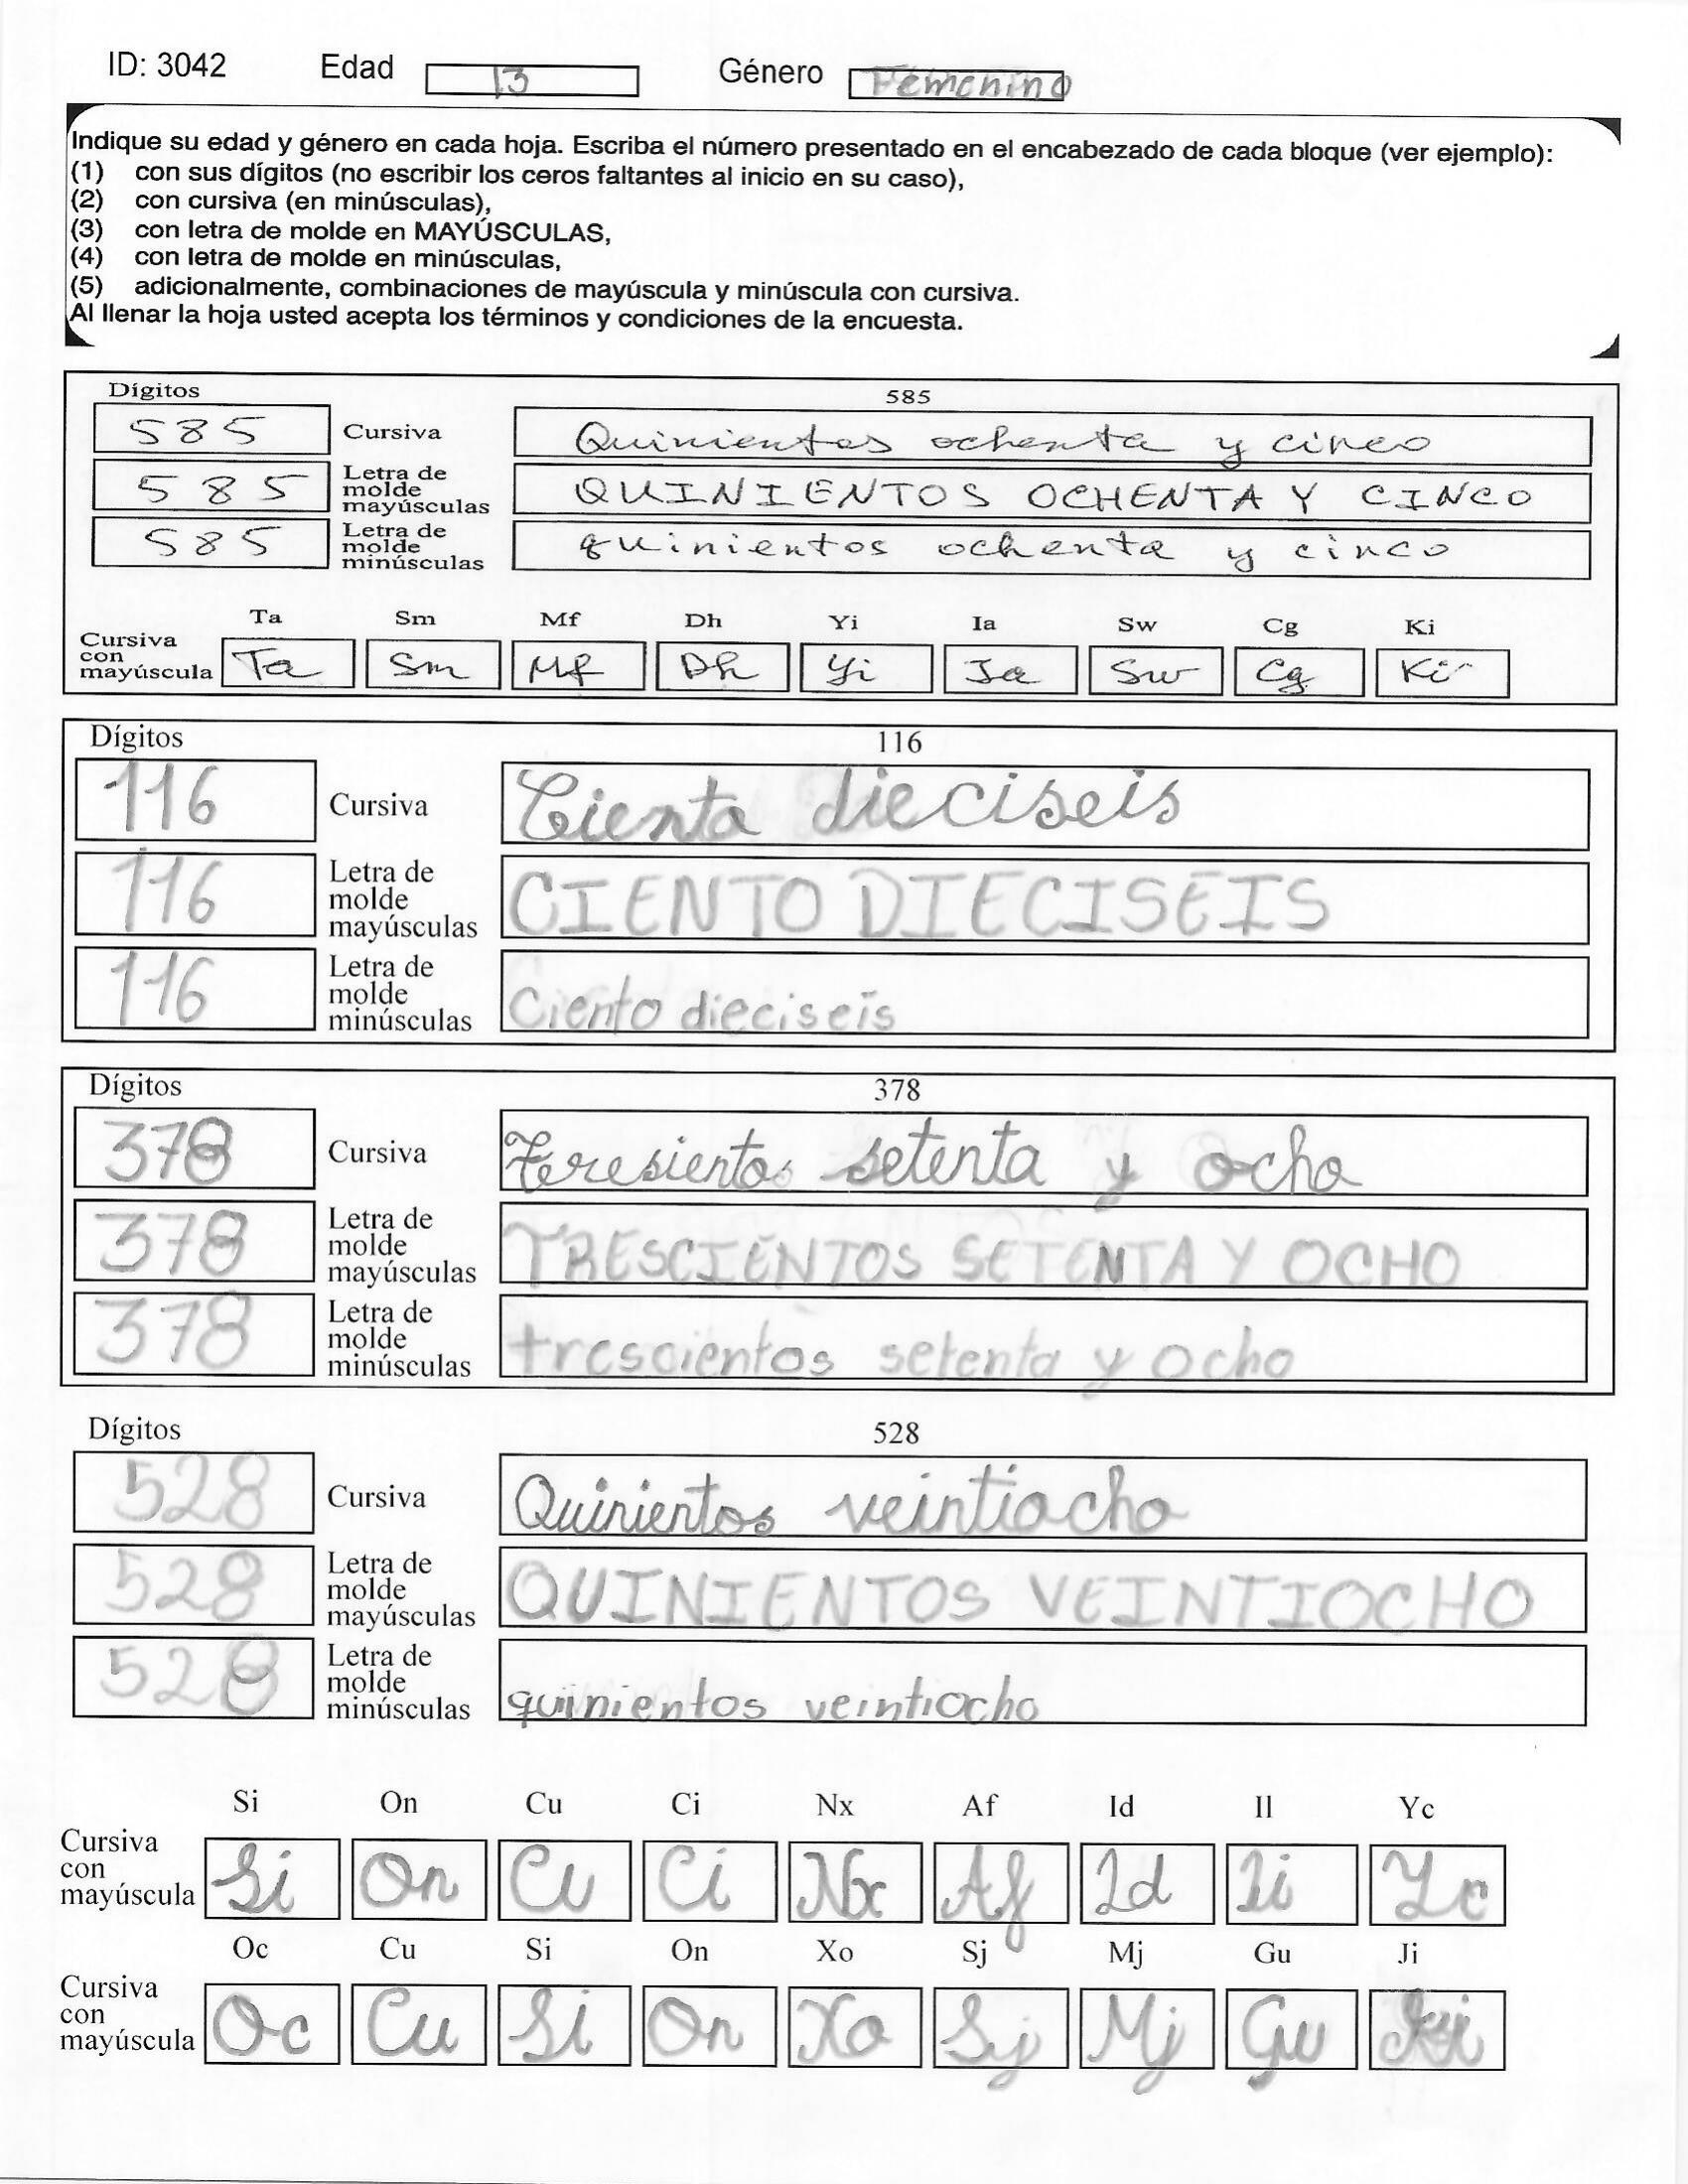 ID: 3042 Edad 13 Género Femenino
Indique su edad y género en cada hoja. Escriba el número presentado en el encabezado de cada bloque (ver ejemplo):
(1) con sus dígitos (no escribir los ceros faltantes al inicio en su caso),
(2) con cursiva (en minúsculas),
(3) con letra de molde en MAYÚSCULAS,
(4) con letra de molde en minúsculas,
(5) adicionalmente, combinaciones de mayúscula y minúscula con cursiva.
Al llenar la hoja usted acepta los términos y condiciones de la encuesta.
Dígitos 585
585 Cursiva Quinientos ochenta y cinco
585 Letra de molde mayúsculas QUINIENTOS OCHENTA Y CINCO
585 Letra de molde minúsculas quinientos ochenta y cinco
Ta Sm Mf Dh Yi Ia Sw Cg Ki
Cursiva con mayúscula Ta Sm Mf Dh Yi Ia Sw Cg Ki
Dígitos 116
116 Cursiva Ciento dieciseis
116 Letra de molde mayúsculas CIENTO DIECISEIS
116 Letra de molde minúsculas Ciento dieciseis
Dígitos 378
378 Cursiva Teresientos setenta y ocho
378 Letra de molde mayúsculas TRESCIENTOS SETENTA Y OCHO
378 Letra de molde minúsculas trescientos setenta y ocho
Dígitos 528
528 Cursiva Quinientos veintiocho
528 Letra de molde mayúsculas QUINIENTOS VEINTIOCHO
528 Letra de molde minúsculas quinientos veintiocho
Si On Cu Ci Nx Af Id Il Yc
Cursiva con mayúscula Si On Cu Ci Nx Af Id Ii Yc
Oc Cu Si On Xo Sj Mj Gu Ji
Cursiva con mayúscula Oc Cu Si On Xo Sj Mj Gu